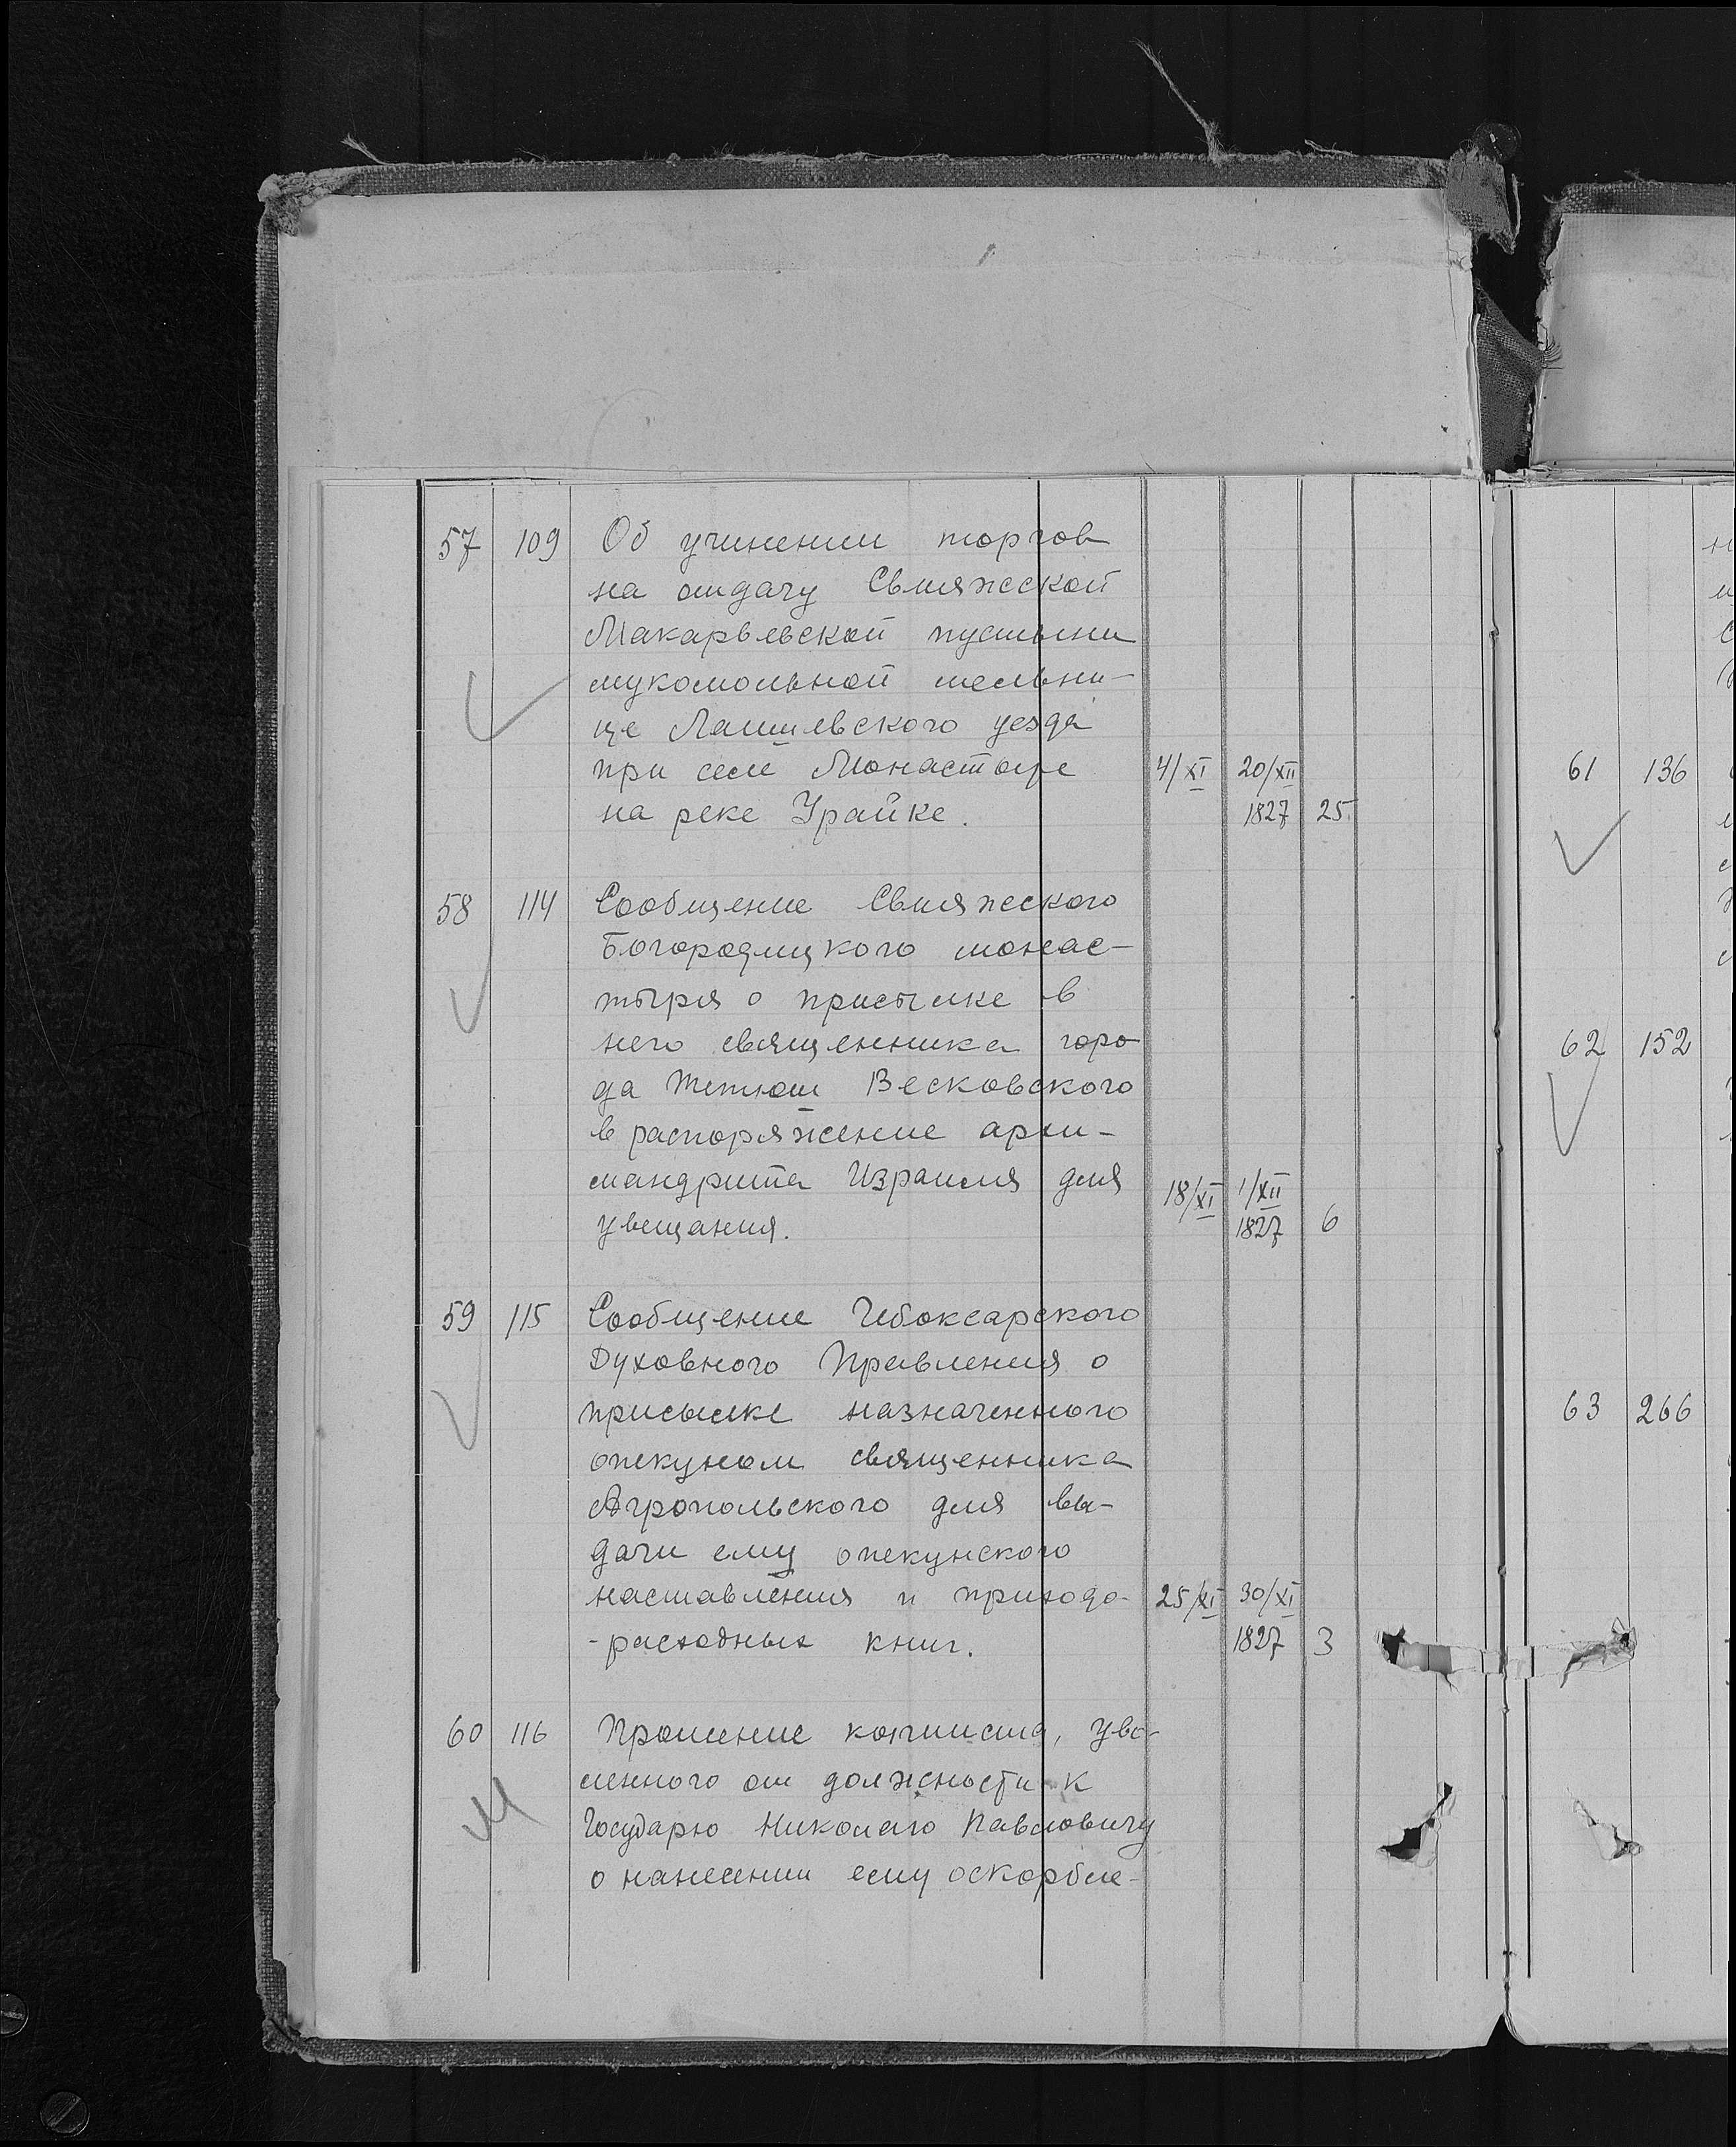 57 109 Об учинении торгов
на отдачу Свияжской
Макарьевской пустыни
мукомольной мельни-
це Лаишевского уезда
при селе Монастыре 4/XI 20/XII
на реке Урайке. 1827 25
58 114 Сообщение Свияжского
Богородицкого монас-
тыря о присылке в
него священника горо
да Тетюш Весковского
в распоряжение архи-
мандрита Израиля для 18/XI 1/XII
увещания. 1827 6
59 115 Сообщение Чебоксарского
Духовного Правления о
присылке назначенного
опекуном священника
Агропольского для вы-
дачи ему опекунского
наставления и приходо- 25/XI 30/XI
-расходных книг. 1827 3
60 116 Прошение копииста, уво-
ленного от должности к
Государю Николаю Павловичу
о нанесении ему оскорбле-
61 136
62 152
63 266